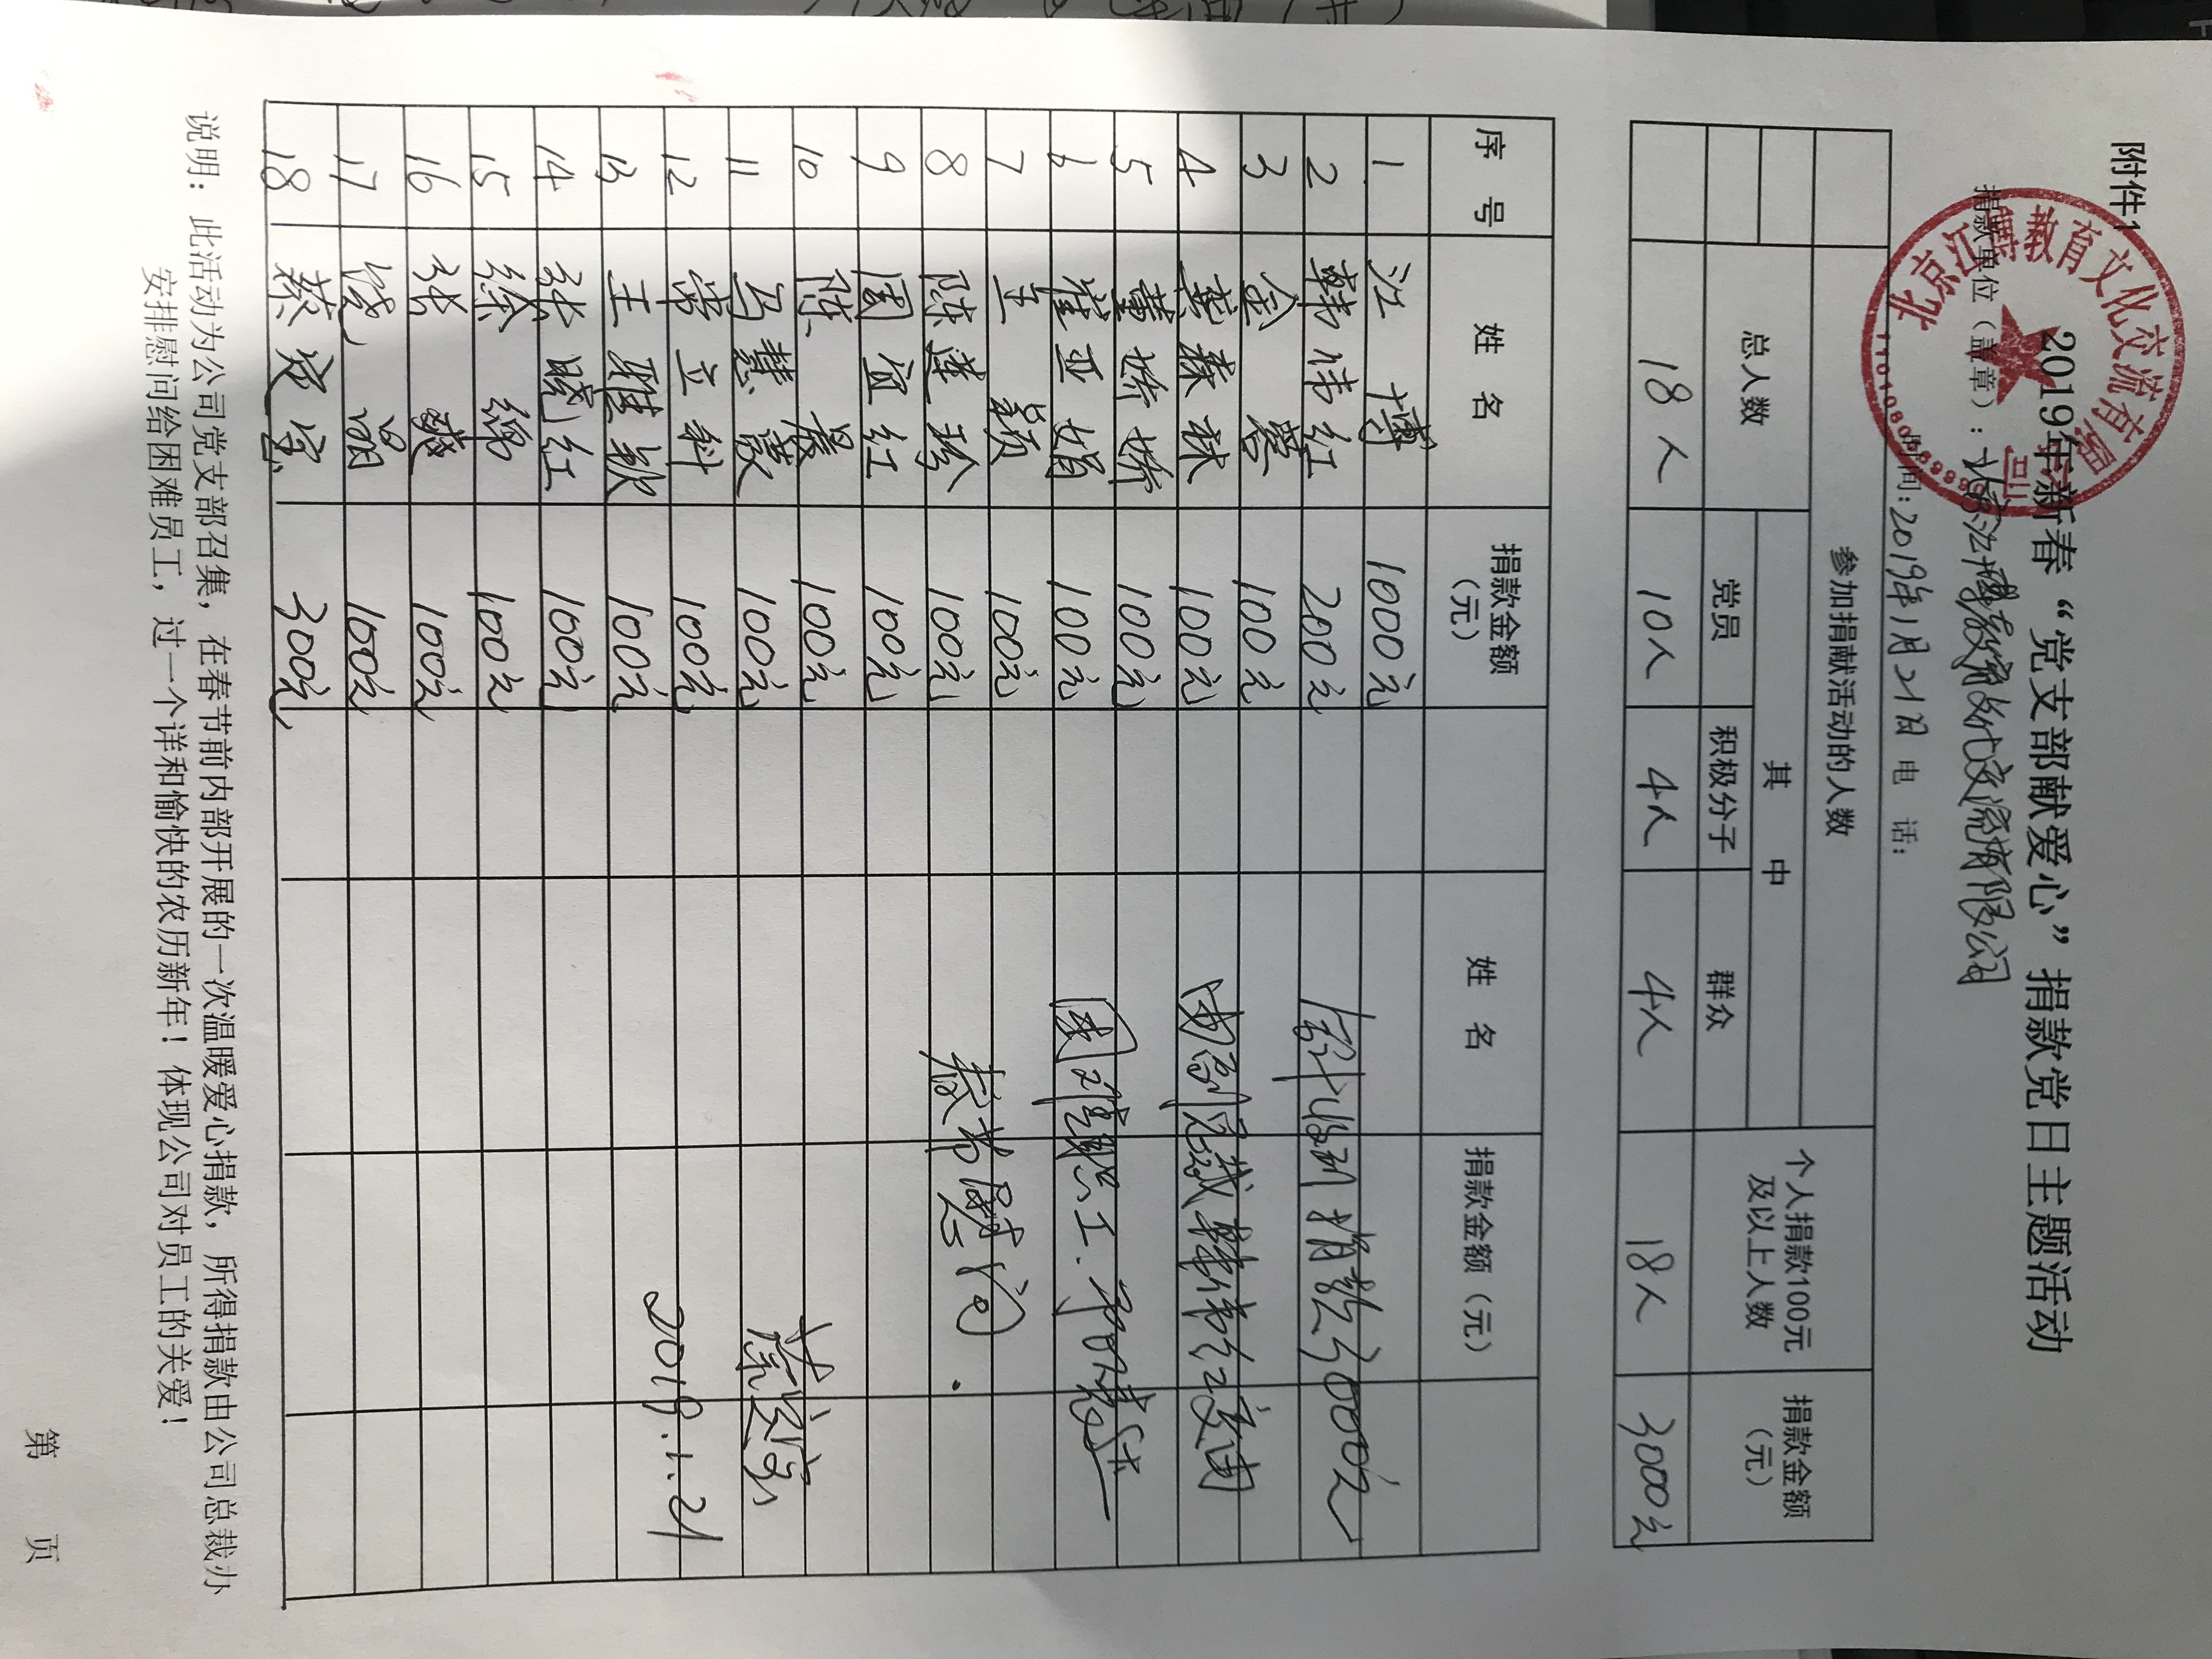 附件1
2019年新春“党支部献爱心”捐款党日主题活动
捐款单位（盖章）：北京江博教育文化交流有限公司
北京江博教育文化交流有限公司
时间：2019年1月21日 电 话：
参加捐献活动的人数
总人数 其 中 个人捐款100元及以上人数 捐款金额（元）
党员 积极分子 群众
18人 10人 4人 4人 18人 3000元
序号 姓名 捐款金额（元） 姓名 捐款金额（元）
1 江博 1000元
2 韩伟红 200元
3 金馨 100元
4 100元
5 董娇娇 100元
6 崔亚娟 100元
7 王颖 100元
8 陈莲珍 100元
9 周宜红 100元
10 陈晨 100元
11 马慧 100元
12 常立科 100元
13 王雅 100元
14 张晓红 100元
15 徐 100元
16 张 100元
17 钱晶 100元
18 300元
合计收到捐款3000元
由副总裁韩伟红交由
困难职工
春节慰问.
2019.1.21
说明：此活动为公司党支部召集，在春节前内部开展的一次温暖爱心捐款，所得捐款由公司总裁办
安排慰问给困难员工，过一个详和愉快的农历新年！体现公司对员工的关爱！
第 页